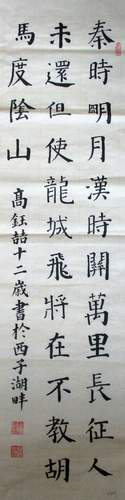 秦時明月漢時關萬里長征人
未還但使龍城飛將在不教胡
馬度陰山
高鈺喆十二歲書於西子湖畔